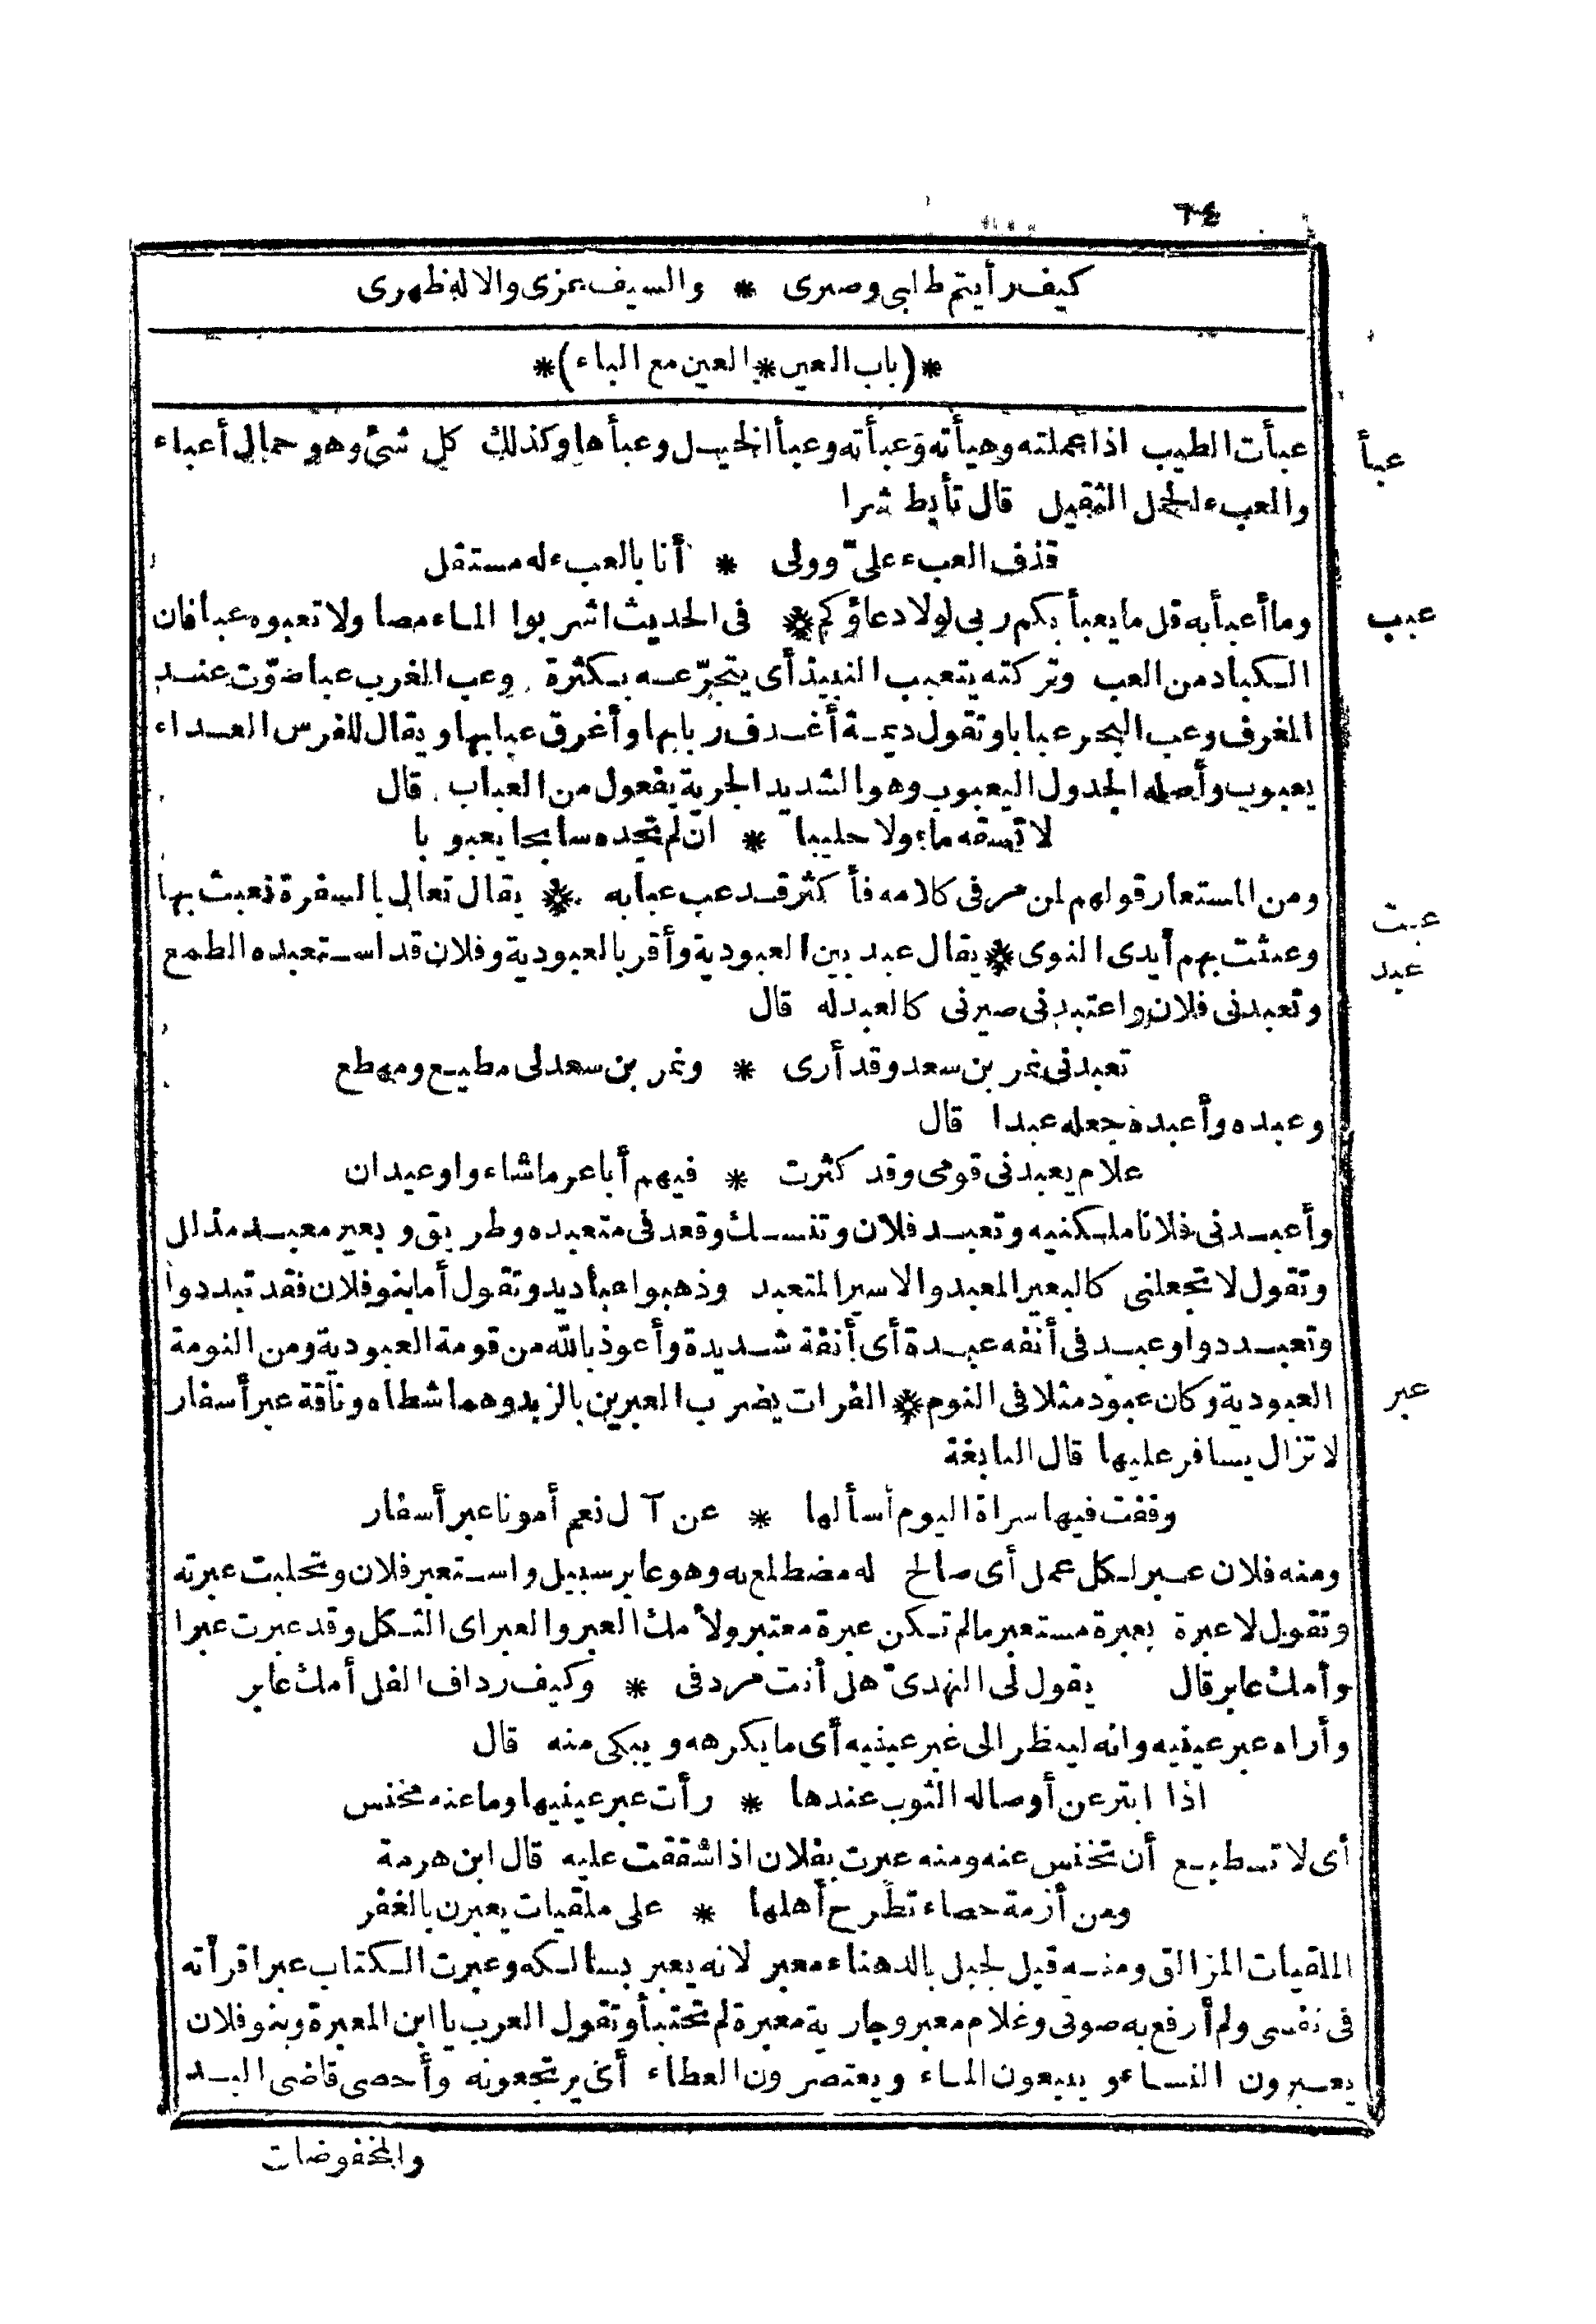 ٦٤
كيف رأيتم طلبى وصبرى * والسيف عزى والاله ظهرى
*(باب العين * العين مع الباء)*
عبأ
عبأت الطيب اذا عملته وهيأته وعبأته وعبأ الخيل وعبأها وكذلك كل شئ وهو حمال أعباء
والعبء الحمل الثقيل قال تأبط شرا
قذف العبء علىّ وولى * أنا بالعبء له مستقل
عبب
وما أعبأ به قل ما يعبأ بكم ربى لولا دعاؤكم * فى الحديث اشربوا الماء مصا ولا تعبوه عبا فان
الكباد من العب وتركته يتعبب النبيذ أى يتجرّعه بكثرة وعب الغرب عبا صوّت عند
الغرف وعب البحر عبابا وتقول ديمة أغدف ربابها وأغرق عبابها ويقال للفرس العداء
يعبوب وأصله الجدول اليعبوب وهو الشديد الجرية يفعول من العباب قال
لا تسقه ماء ولا حليبا * ان لم تجده سابحا يعبوبا
عبث
ومن المستعار قولهم لمن مر فى كلامه فأكثر قد عب عبابه * يقال تعالى بالسفرة نعبث بها
عبد
وعبثت بهم أيدى النوى * يقال عبد بين العبودية وأقر بالعبودية وفلان قد استعبده الطمع
وتعبدنى فلان واعتبدنى صيرنى كالعبد له قال
تعبدنى نمر بن سعد وقد أرى * ونمر بن سعد لى مطيع ومهطع
وعبده وأعبده جعله عبدا قال
علام يعبدنى قومى وقد كثرت * فيهم أباعر ما شاءوا وعبدان
وأعبدنى فلانا ملكنيه وتعبد فلان وتنسك وقعد فى متعبده وطريق وبعير معبد مذلل
وتقول لا تجعلنى كالبعير المعبد والاسير المتعبد وذهبوا عباديد وتقول أما بنو فلان فقد تبددوا
وتعبددوا وعبد فى أنفه عبدة أى أنفة شديدة وأعوذ بالله من قومة العبودية ومن النومة
عبر
العبودية وكان عبود مثلا فى النوم * الفرات يضرب العبرين بالزبد وهما شطاه وناقة عبر أسفار
لا تزال يسافر عليها قال النابغة
وقفت فيها سراة اليوم أسألها * عن آل نعم أمونا عبر أسفار
ومنه فلان عبر لكل عمل أى صالح له مضطلع به وهو عابر سبيل واستعبر فلان وتحلبت عبرته
وتقول لا عبرة بعبرة مستعبر مالم تكن عبرة معتبر ولأمك العبر والعبر اى الثكل وقد عبرت عبرا
وأمك عابر قال يقول لى النهدىّ هل أنت مردفى * وكيف رداف الفل أمك عابر
وأراه عبر عينيه وانه لينظر الى عبر عينيه أى ما يكرهه ويبكى منه قال
اذا ابتز عن أوصاله الثوب عندها * رأت عبر عينيها وما عنه مخنس
أى لا تسطيع أن تخنس عنه ومنه عبرت بفلان اذا شققت عليه قال ابن هرمة
ومن أزمة حصاء تطرح أهلها * على ملقيات يعبرن بالغفر
الملقيات المزالق ومنه قيل لجبل بالدهناء معبر لانه يعبر بسالكه وعبرت الكتاب عبرا قرأته
فى نفسى ولم أرفع به صوتى وغلام معبر وجارية معبرة لم تختنبأ وتقول العرب يا ابن المعبرة وبنو فلان
يعبرون النساء ويبيعون الماء ويعتصرون العطاء أى يرتجعونه وأحصى قاضى البد
والمخفوضات